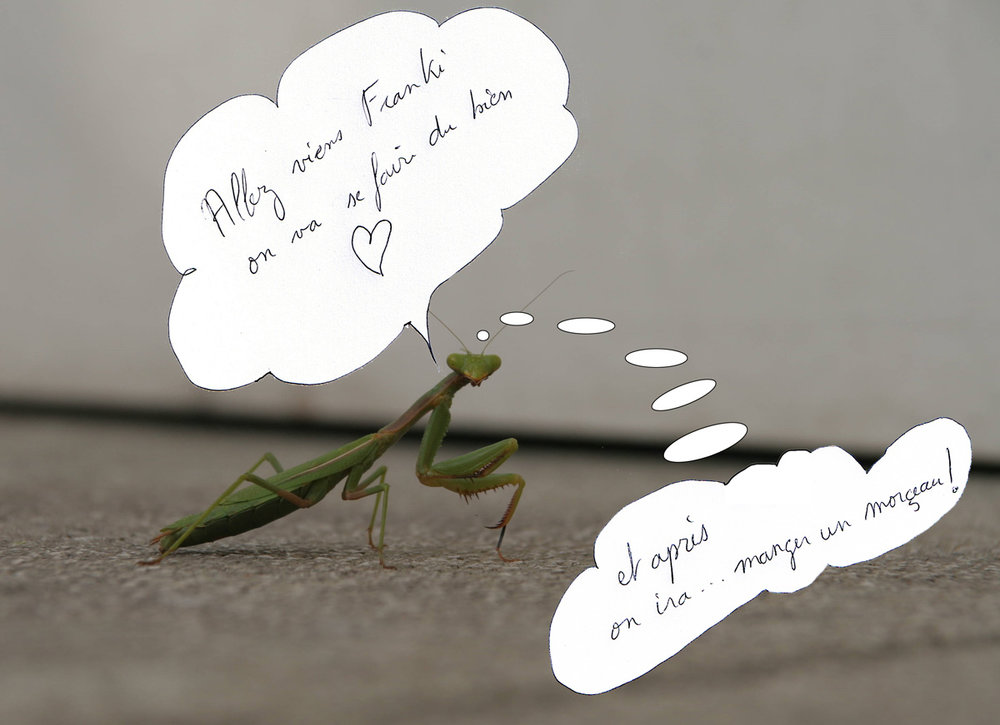 Allez viens Franki
on va se faire du bien
et après
on ira... manger un morçeau!